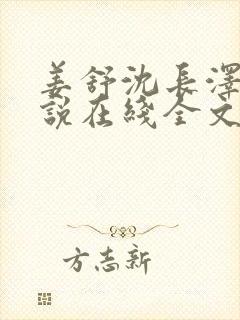 姜舒沈長澤
說在綫全文
方志新